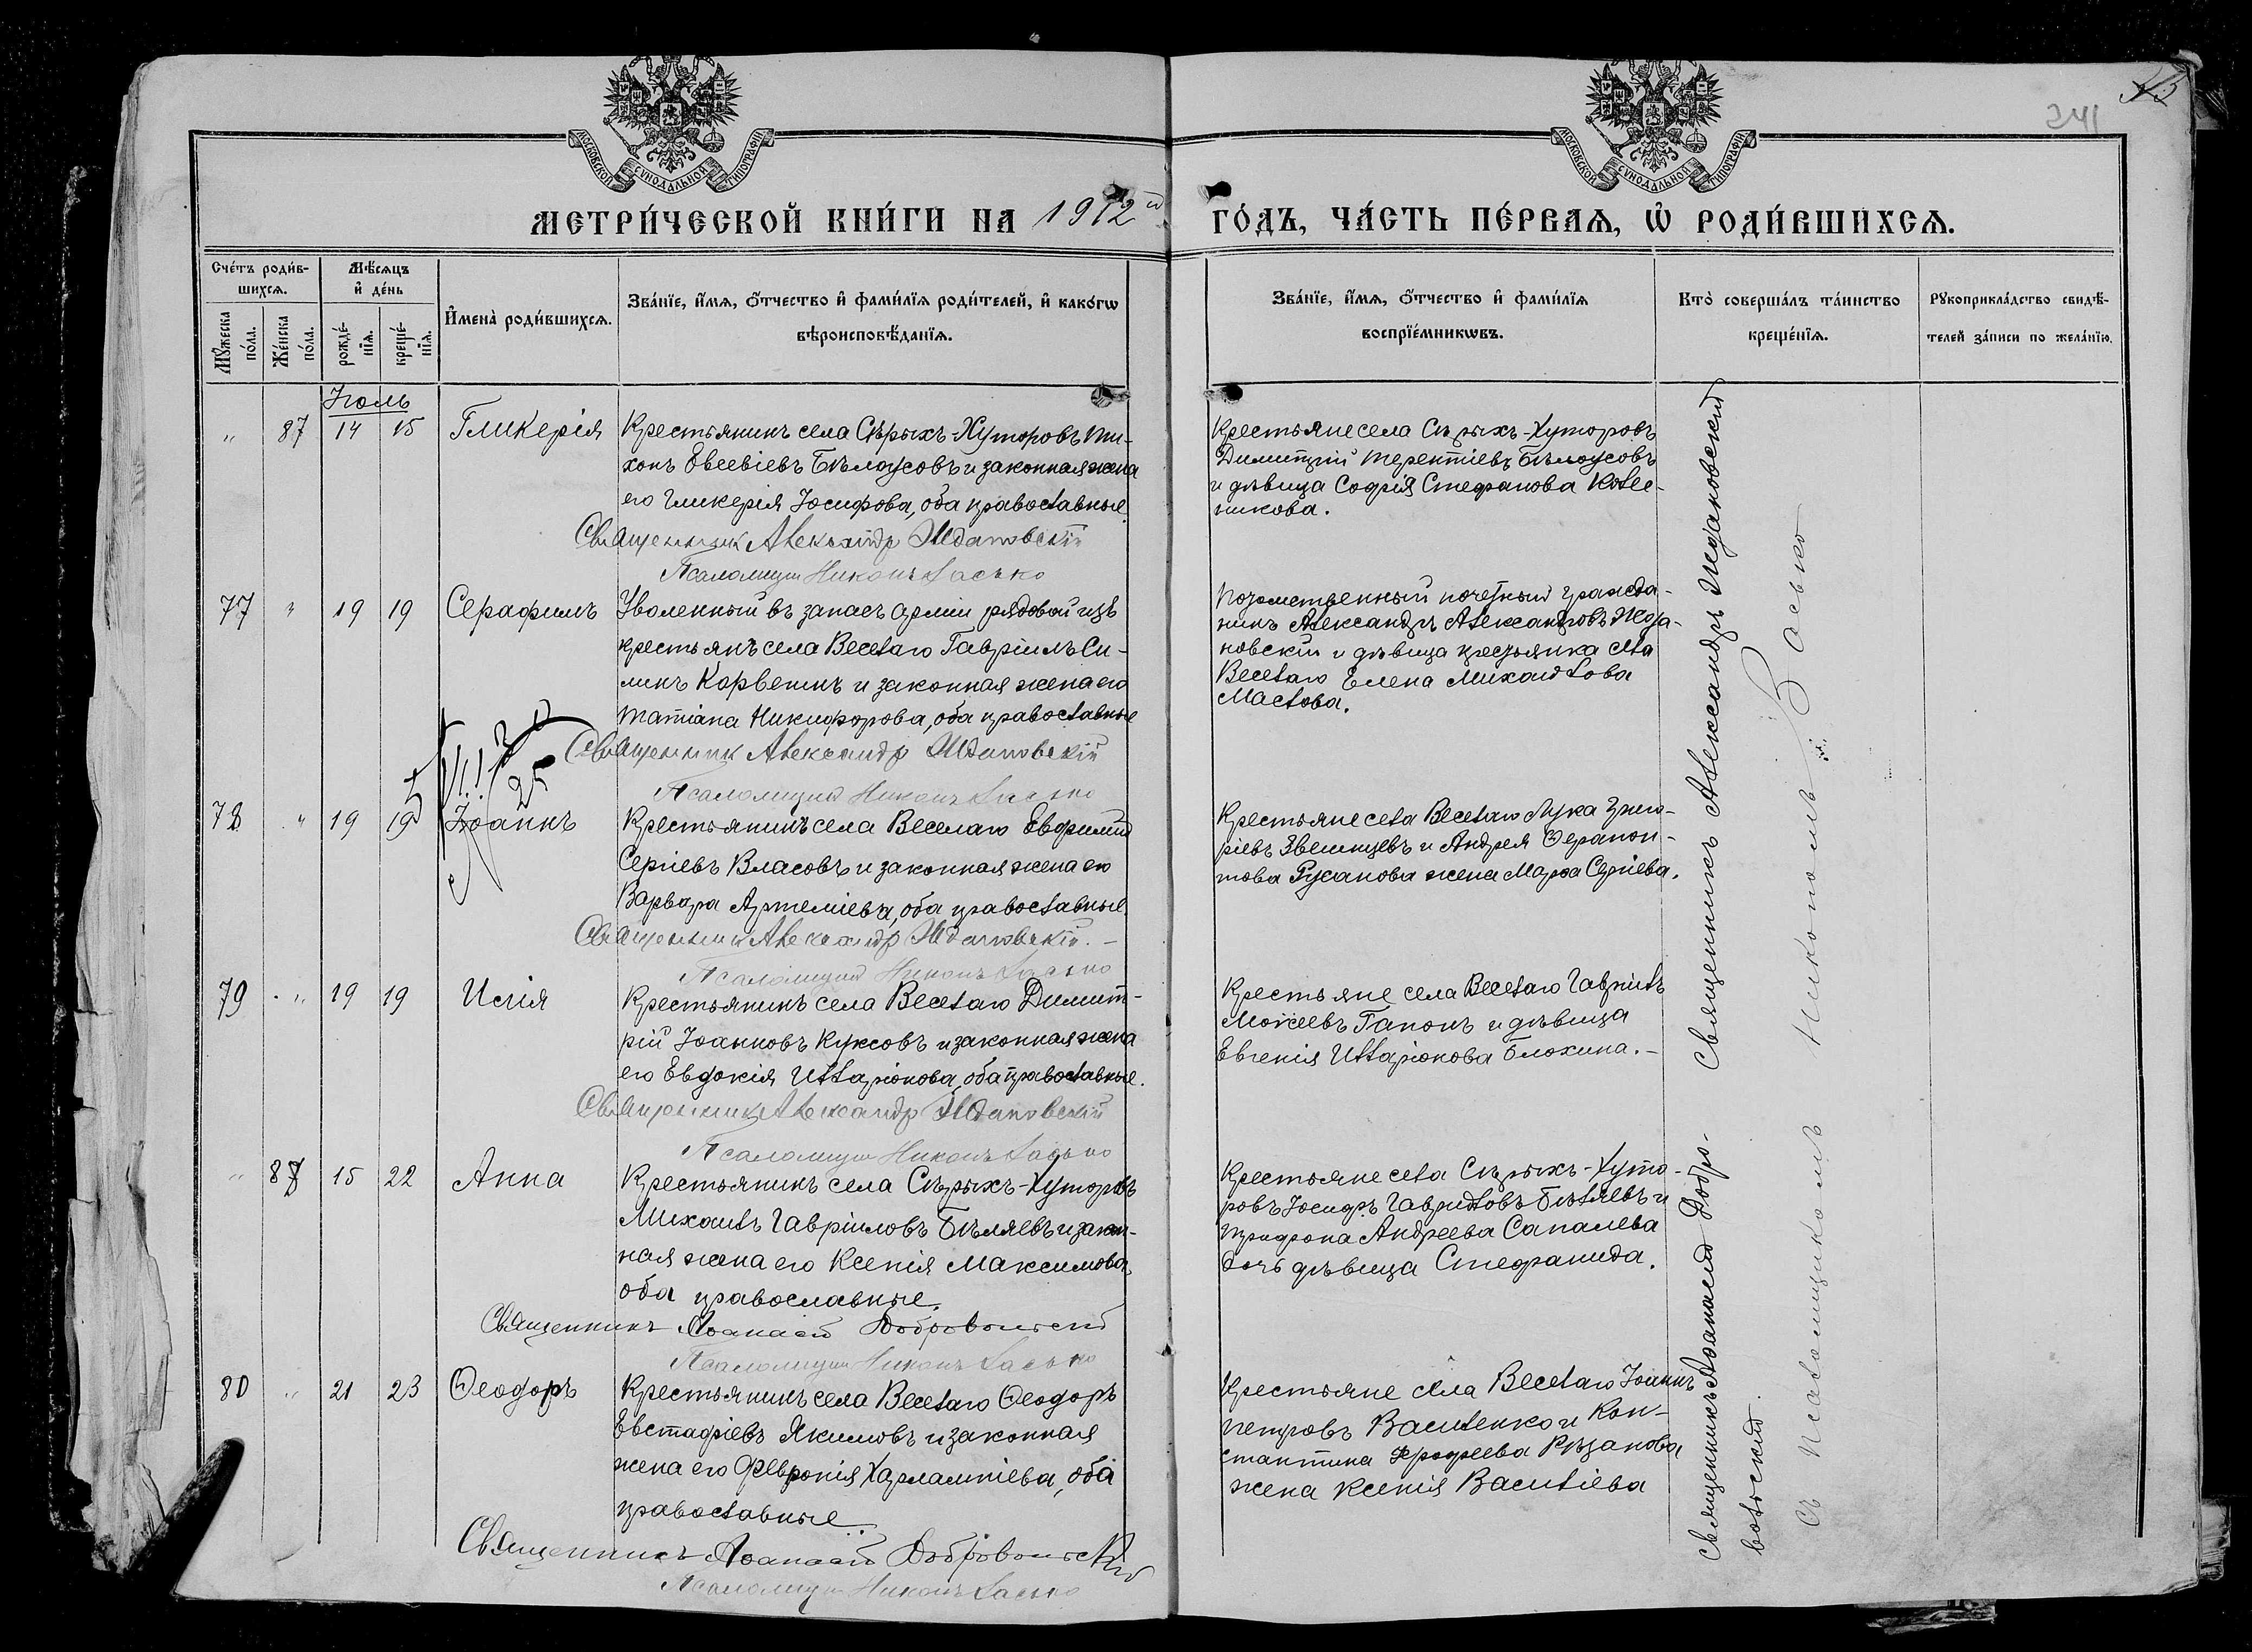 241
МОСКОВСКОЙ СѴНОДАЛЬНОЙ ТИПОГРАФІИ
МОСКОВСКОЙ СѴНОДАЛЬНОЙ ТИПОГРАФІИ
МЕТРИ́ЧЕСКОЙ КНИ́ГИ НА 1912 й
ГО́ДЪ, ЧА́СТЬ ПЕ́РВАЯ, Ѡ҆ РОДИ́ВШИХСЯ.
Сче́тъ роди́в-
шихся.
Мѣ́сяцъ
и҆ де́нь
Мꙋ́жеска
по́ла.
Же́нска
по́ла.
рожде́-
нїя.
креще́-
нїя.
И҆мена̀ роди́вшихся.
Зва́нїе, и҆́мя, ѻ҆́тчество и҆ фами́лїя роди́телей, и҆ како́гѡ
вѣроисповѣ́данїя.
Зва́нїе, и҆́мя, ѻ҆́тчество и҆ фами́лїя
воспрїе́мникѡвъ.
Кто̀ соверша́лъ та́инство
креще́нїя.
Рꙋкоприкла́дство свидѣ́-
телей за́писи по жела́нїю.
Іюль
„ 87 14 15 Гликерія
Крестьянинъ села Сѣрыхъ-Хуторовъ Ти-
хонъ Евсевіевъ Бѣлоусовъ и законная жена
его Гликерія Іосифова, оба православные.
Священник Александр Ждановскій
Псаломщик Никонъ Васько
Крестьяне села Сѣрыхъ-Хуторовъ
Димитрій Терентіевъ Бѣлоусовъ
и дѣвица Софія Стефанова Колес-
никова.
77 „ 19 19 Серафимъ
Уволенный въ запасъ арміи рядовой изъ
крестьянъ села Веселаго Гавріилъ Си-
линъ Корветинъ и законная жена его
Татіана Никифорова, оба православные
Священник Александр Ждановскій
Псаломщик Никонъ Васько
Потомственный почетный гражда-
нинъ Александръ Александровъ Жда-
новскій и дѣвица крестьянка села
Веселаго Елена Михайлова
Маслова.
78 „ 19 19 Іоаннъ
Крестьянинъ села Веселаго Евфимій
Сергіевъ Власовъ и законная жена его
Варвара Артеміева, оба православные.
Священник Александр Ждановскій. –
Псаломщик Никонъ Васько
Крестьяне села Веселаго Лука Григо-
ріевъ Звегинцевъ и Андрея Ѳерапон-
това Русанова жена Марѳа Сергіева.
79 „ 19 19 Илія
Крестьянинъ села Веселаго Димит-
рій Іоанновъ Куксовъ и законная жена
его Евдокія Илларіонова, оба православные.
Священник Александр Ждановскій
Псаломщик Никонъ Васько
Крестьяне села Веселаго Гавріилъ
Моисеевъ Гапонъ и дѣвица
Евгенія Илларіонова Блохина. –
„ 88 15 22 Анна
Крестьянинъ села Сѣрыхъ-Хуторовъ
Михаилъ Гавріиловъ Бѣляевъ и закон-
ная жена его Ксенія Максимова,
оба православные.
Священникъ Аѳанасій Добровольскій
Псаломщик Никонъ Васько
Крестьяне села Сѣрыхъ-Хуто-
ровъ Іосифъ Гавріиловъ Бѣляевъ и
Трифона Андреева Сапалева
дочь дѣвица Стефанида.
80 „ 21 23 Ѳеодоръ
Крестьянинъ села Веселаго Ѳеодоръ
Евстафіевъ Якимовъ и законная
жена его Февронія Харлампіева, оба
православные.
Священникъ Аѳанасій Добровольскій
Псаломщик Никонъ Васько
Крестьяне села Веселаго Іоаннъ
Петровъ Василенко и Кон-
стантина Ерофеева Рѣзанова
жена Ксенія Василіева
Священникъ Александръ Ждановскій
Священникъ Аѳанасій Добро-
вольскій.
съ Псаломщикомъ Никономъ Васько